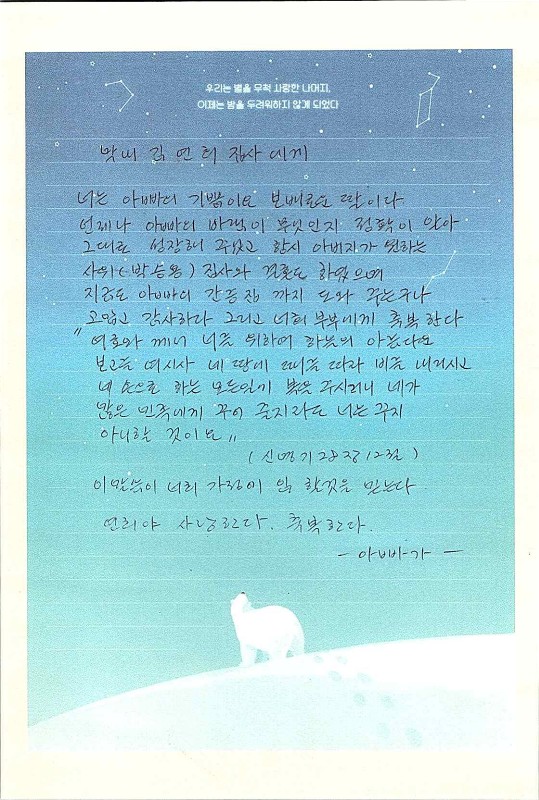 우리는 별을 무척 사랑한 나머지,
이제는 밤을 두려워하지 않게 되었다
막내 김연희 집사에게
너는 아빠의 기쁨이요 보배로운 딸이다
언제나 아빠의 바램이 무엇인지 정확이 알아
그대로 성장해 주었고 항시 아버지가 원하는
사위(박승용) 집사와 결혼도 하였으며
지금도 아빠의 간증집 까지 도와 주는구나
고맙고 감사하다 그리고 너희 부부에게 축복한다
"여호와 께서 너를 위하여 하늘의 아름다운
보고를 여시사 네 땅에 때를 따라 비를 내리시고
네 손으로 하는 모든일에 복을 주시리니 네가
많은 민족에게 꾸어 줄지라도 너는 꾸지
아니할 것이요"
(신명기 28장 12절)
이말씀이 너희 가정에 임 할것을 믿는다.
연희야 사랑한다. 축복한다.
- 아빠가 -